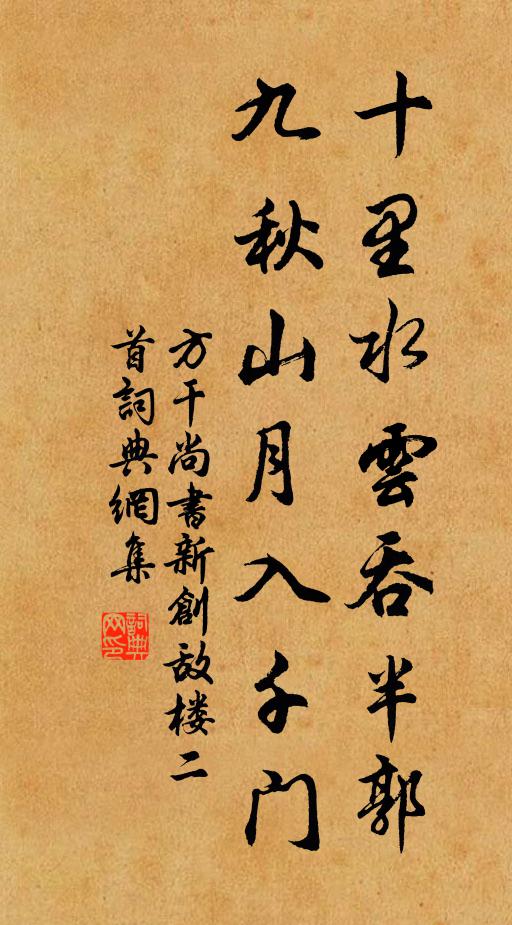 十里水雲吞半郭
九秋山月入千门
方干尚書新創敌楼二
首詞典網集
詞典网印